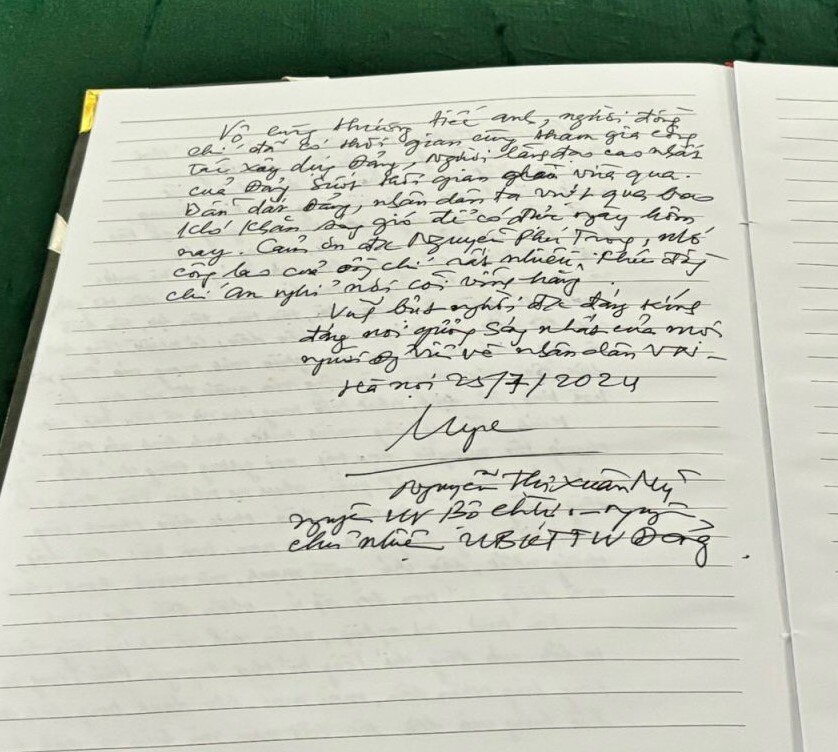 Vô cùng thương tiếc anh, người đồng
chí đã có thời gian cùng tham gia công
tác xây dựng Đảng, Người lãnh đạo cao nhất
của Đảng suốt thời gian qua vừa qua.
Dẫn dắt Đảng, nhân dân ta vượt qua bao
khó khăn sóng gió để có được ngày hôm
nay. Cảm ơn đc Nguyễn Phú Trọng, nhớ
công lao của đồng chí rất nhiều. Chúc đồng
chí an nghỉ nơi cõi vĩnh hằng.
Vĩnh biệt người đc đáng kính
đáng noi gương sáng nhất của mọi
người về nhân dân VN -
Hà nội 25/7/2024
Nguyễn Thị Xuân Mỹ
nguyên UV Bộ chính - nguyên
chủ nhiệm UBKTTW Đảng